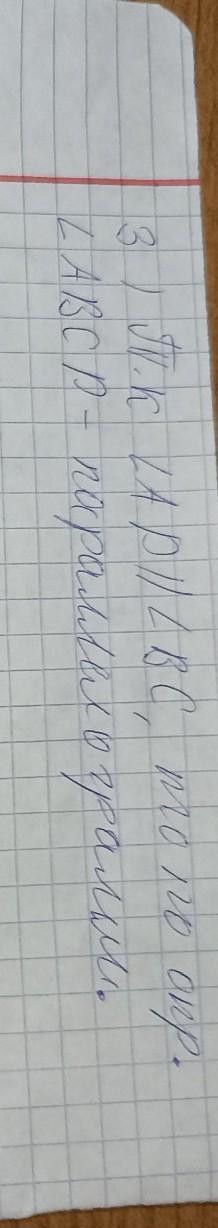 3) Т.к ∠AD//∠BC, то по опр.
∠ABCD - параллелограмм.